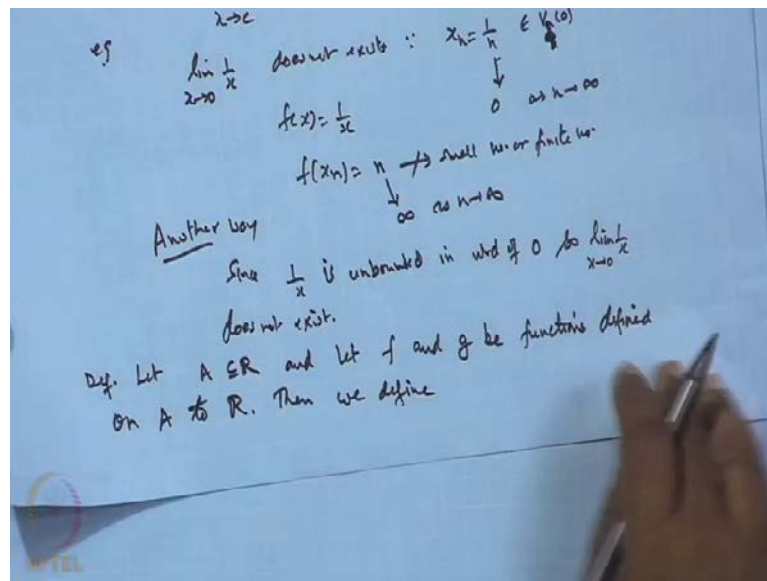 x→c
eg lim 1/x does not exists ∵ xₙ = 1/n ∈ V (0)
x→0 ↓
f(x) = 1/x 0 as n→∞
f(xₙ) = n ↛ small no. or finite no.
↓
∞ as n→∞
Another way
Since 1/x is unbounded in nbd of 0 so lim 1/x
x→0
does not exist.
Def. Let A ⊆ R and let f and g be functions defined
on A to R. Then we define
NPTEL